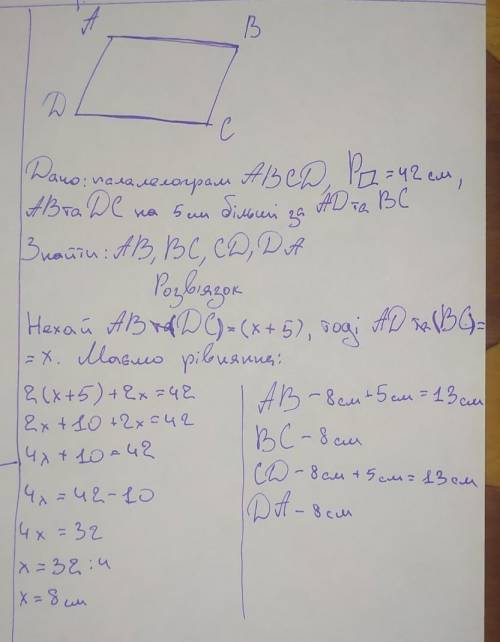 A B
D C
Дано: паралелограм ABCD, P▱ = 42 см,
AB та DC на 5 см більші за AD та BC
Знайти: AB, BC, CD, DA
Розв'язок
Нехай AB та (DC) = (x + 5), тоді AD та (BC) =
= x. Маємо рівняння:
2(x+5)+2x=42
2x+10+2x=42
4x+10=42
4x=42-10
4x=32
x=32:4
x=8см
AB - 8см+5см=13см
BC - 8см
CD - 8см+5см=13см
DA - 8см